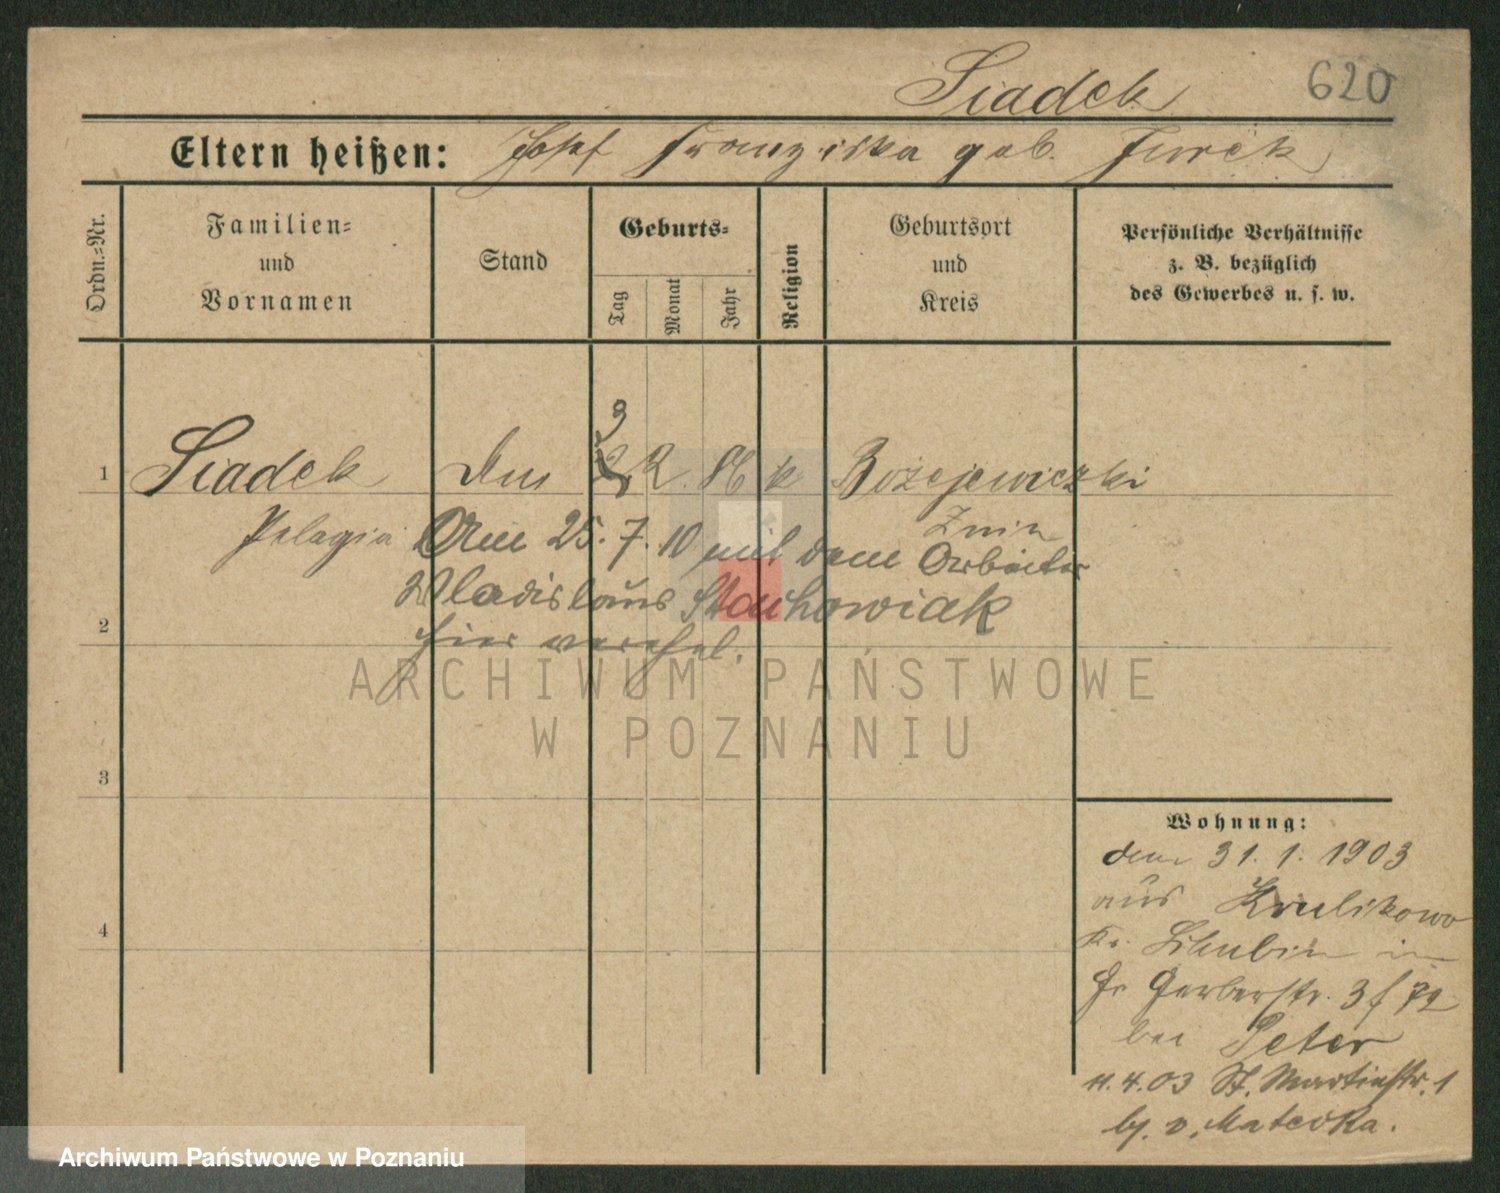 Siadek 620
Eltern heißen: Josef Franziska geb. Jurek
Ordn.=Nr.
Familien=
und
Vornamen
Stand
Geburts=
Tag
Monat
Jahr
Religion
Geburtsort
und
Kreis
Persönliche Verhältnisse
z. B. bezüglich
des Gewerbes u. s. w.
3
1 Siadek 2. 86 k Bożejewiczki
Pelagia Znin
Am 25. 7. 10 mit dem Arbeiter
Wladislaus Stachowiak
2
hier verehel.
ARCHIWUM PAŃSTWOWE
W POZNANIU
3
4
Wohnung:
den 31. 1. 1903
aus Krulikowo
Kr. Schubin in
Gr Gerberstr. 3
bei Peter
11. 4. 03 St. Martinstr. 1
b. v. Matecka.
Archiwum Państwowe w Poznaniu